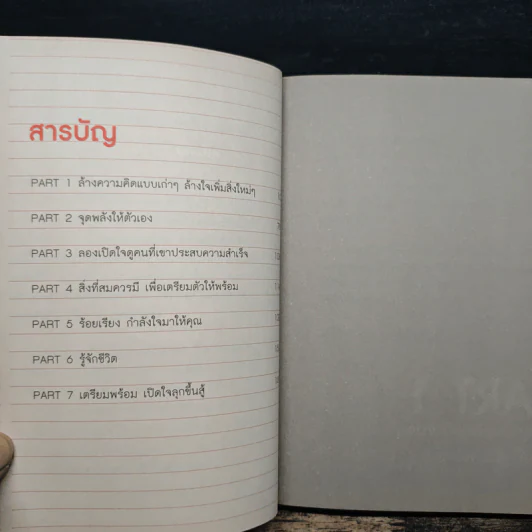 สารบัญ
PART 1 ล้างความคิดแบบเก่าๆ ล้างใจเพิ่มสิ่งใหม่ๆ
PART 2 จุดพลังให้ตัวเอง
PART 3 ลองเปิดใจดูคนที่เขาประสบความสำเร็จ
PART 4 สิ่งที่สมควรมี เพื่อเตรียมตัวให้พร้อม
PART 5 ร้อยเรียง กำลังใจมาให้คุณ
PART 6 รู้จักชีวิต
PART 7 เตรียมพร้อม เปิดใจลุกขึ้นสู้